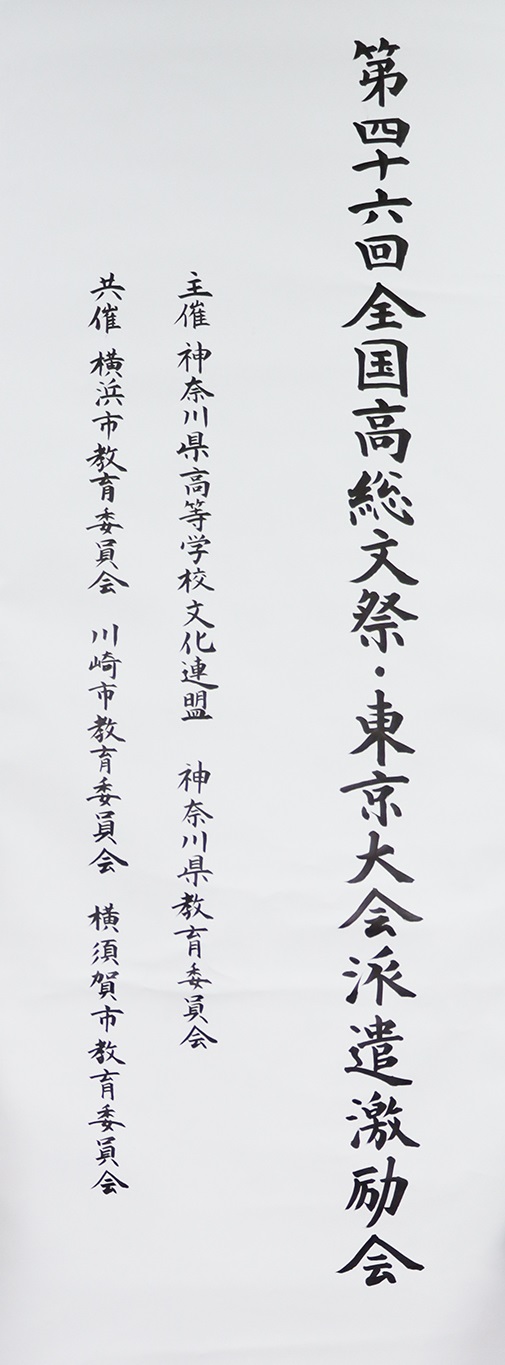 第四十六回全国高総文祭・東京大会派遣激励会
主催 神奈川県高等学校文化連盟 神奈川県教育委員会
共催 横浜市教育委員会 川崎市教育委員会 横須賀市教育委員会